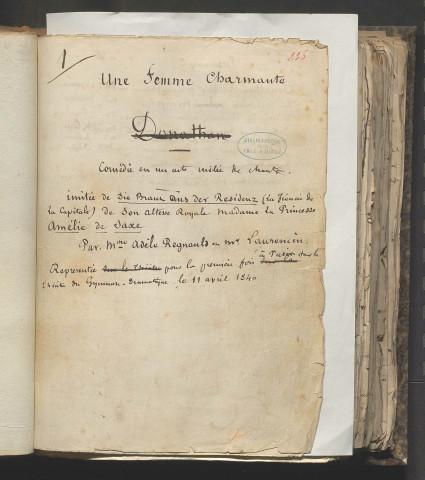 1
235
Une Femme Charmante
Donathan
Comédie en un acte mêlée de chants.
imitée de Die Braut Aus der Residenz (La fiancée de
la Capitale) de Son Altesse Royale Madame la Princesse
Amélie de Saxe
Par. Mme Adèle Regnauld et Mr Laurencin
à Paris sur le
Representée sur le Théâtre pour la première fois
théâtre du Gymnase-Dramatique le 11 avril 1840